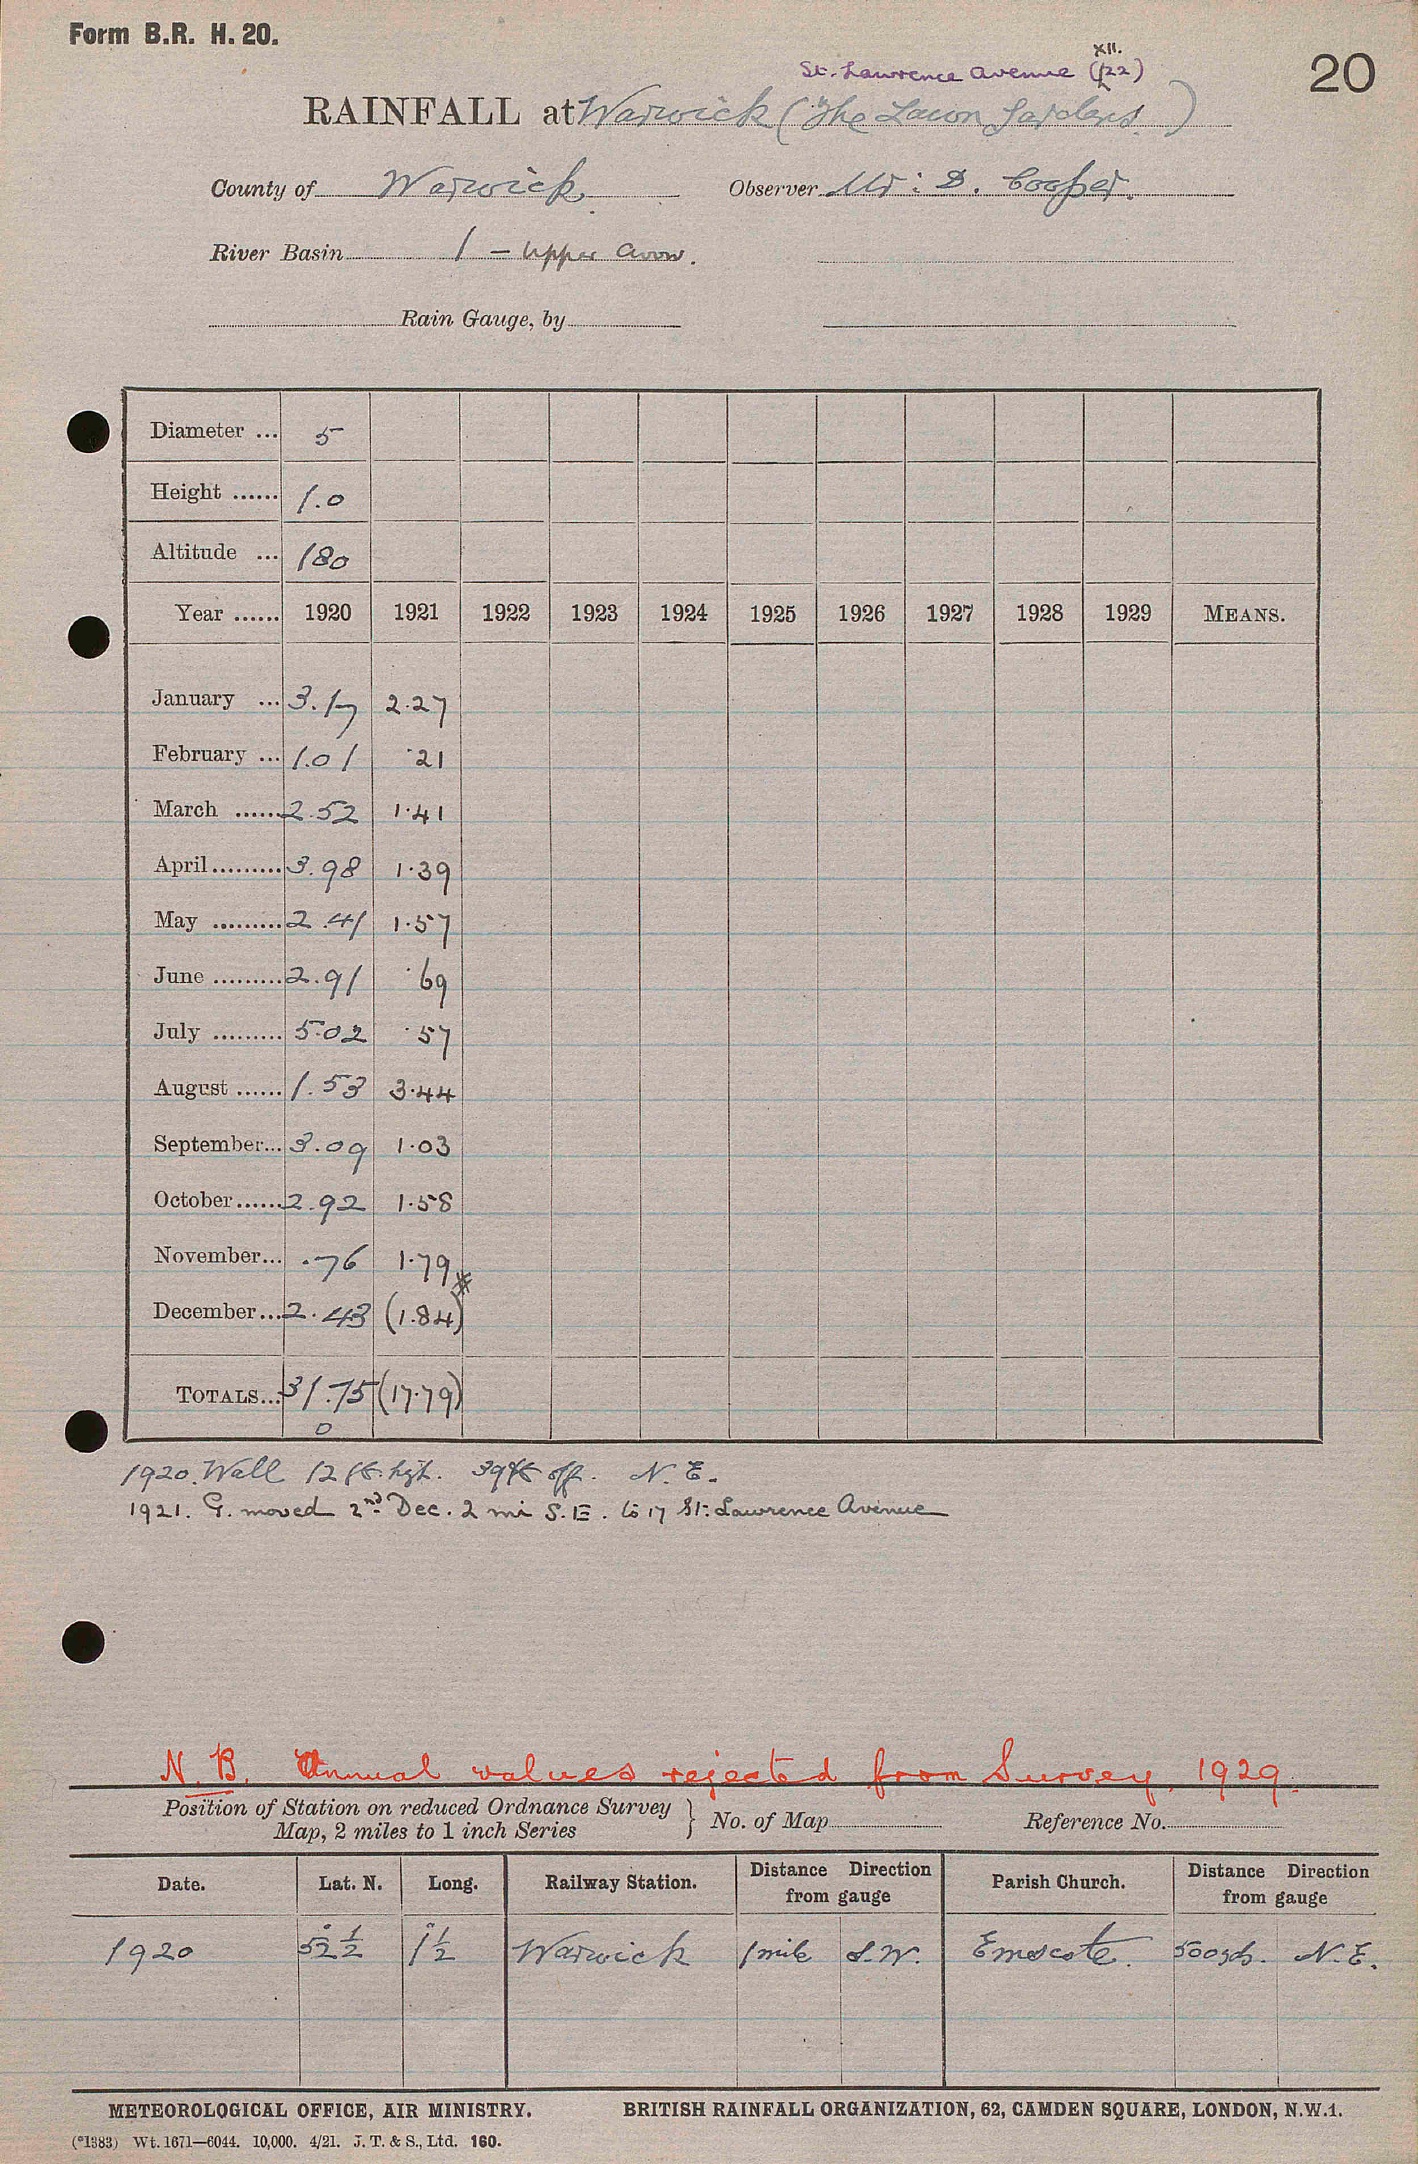 Form B.R. H. 20.
XII.
St. Lawrence Avenue (22)
20
RAINFALL at Warwick (The Lawn Gardens)
County of Warwick. Observer Mr: D. Cooper.
River Basin 1 – Upper Avon.
Rain Gauge, by
Diameter ... 5
Height ...... 1.0
Altitude ... 180
Year ...... 1920 1921 1922 1923 1924 1925 1926 1927 1928 1929 MEANS.
January ... 3.17 2.27
February ... 1.01 ·21
March ...... 2.52 1·41
April ......... 3.98 1·39
May ......... 2.41 1·57
June ......... 2.91 ·69
July ......... 5.02 ·57
August ...... 1.53 3·44
September... 3.09 1·03
October ...... 2.92 1·58
November... .76 1·79
December ... 2.43 (1.84)*
TOTALS... 31.75 (17·79)
0
1920. Wall 12 ft. hgh. 39 ft off. N. E.
1921. G. moved 2nd Dec. 2 mi S.E. to 17 St: Lawrence Avenue
N.B. Annual values rejected from Survey, 1929.
Position of Station on reduced Ordnance Survey
Map, 2 miles to 1 inch Series } No. of Map Reference No.
Date. Lat. N. Long. Railway Station. Distance Direction from gauge Parish Church. Distance Direction from gauge
1920 52° ½ 1° ½ Warwick 1 mile S.W. Emscote. 500 yds. N.E.
METEOROLOGICAL OFFICE, AIR MINISTRY. BRITISH RAINFALL ORGANIZATION, 62, CAMDEN SQUARE, LONDON, N.W.1.
(*1383) Wt. 1671—6044. 10,000. 4/21. J. T. & S., Ltd. 160.